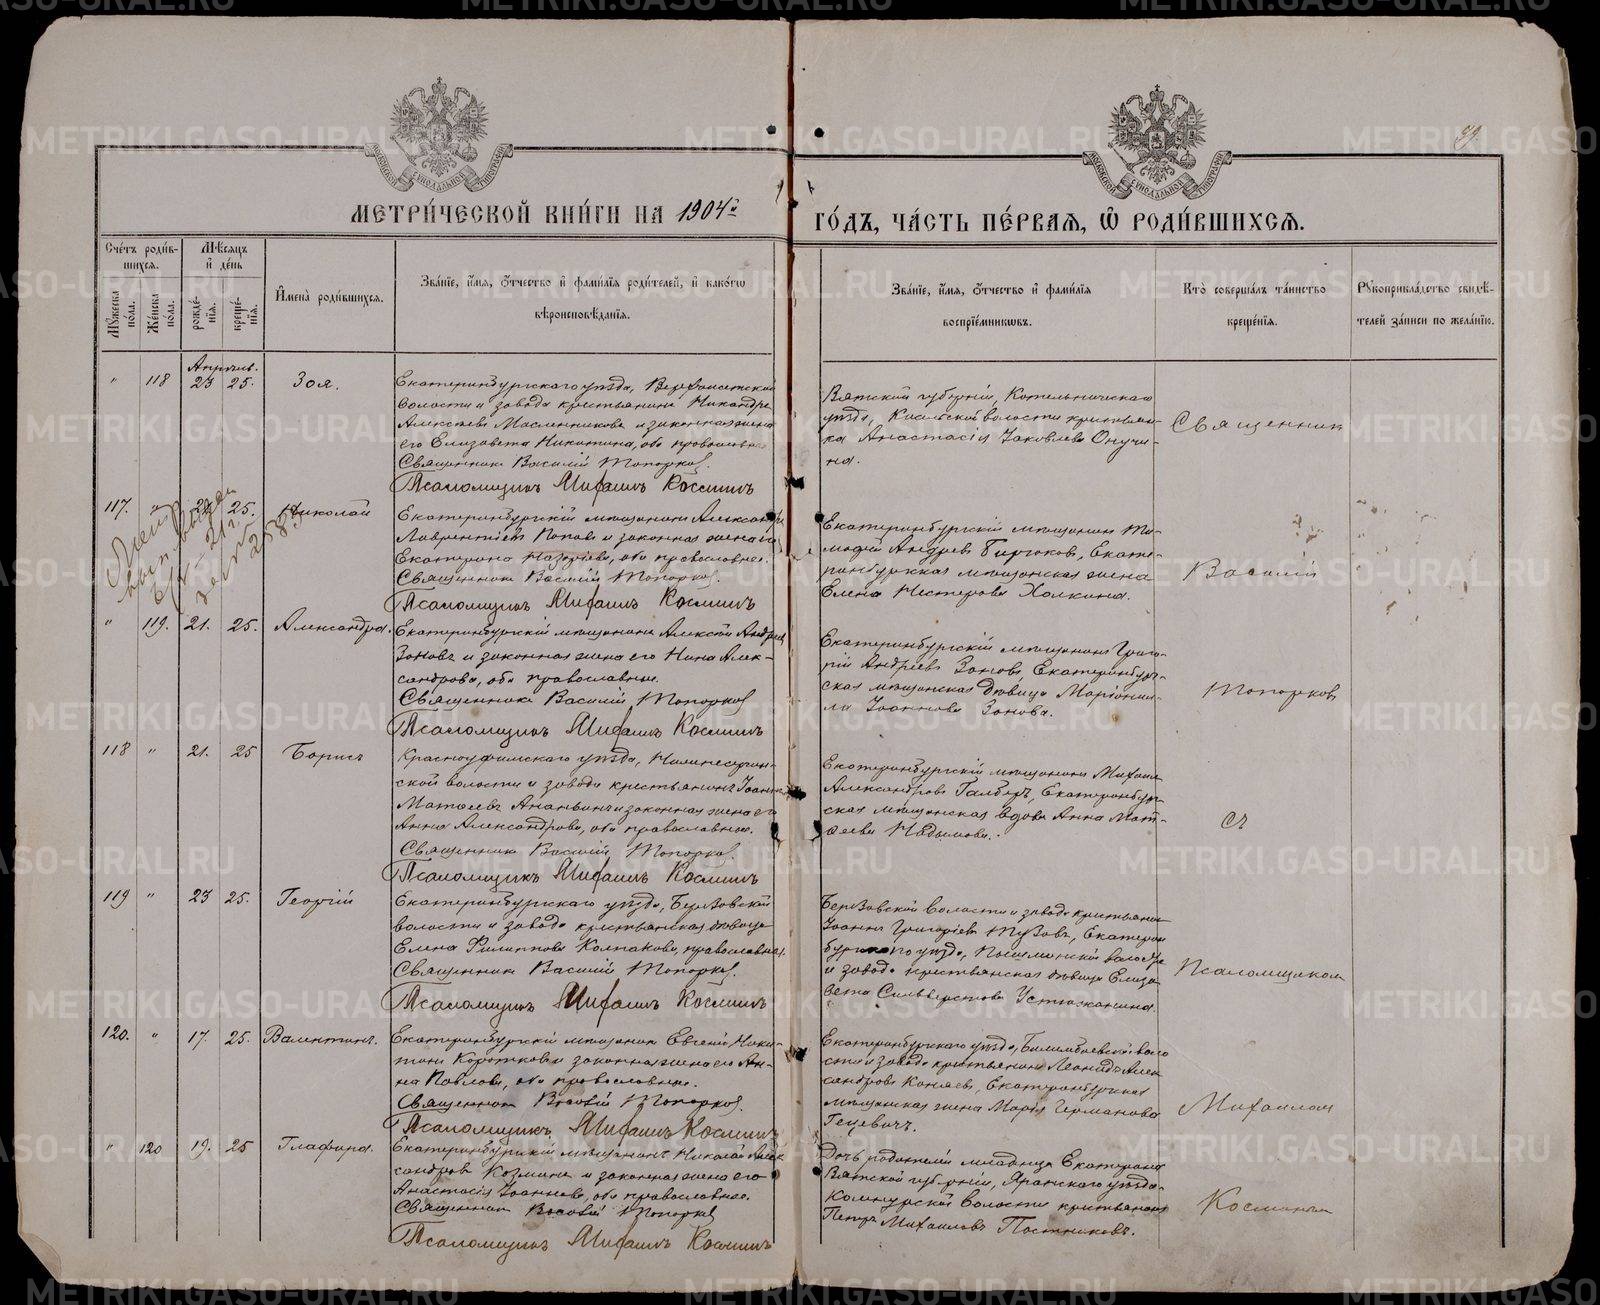 99
МОСКОВСКОЙ СѴНОДАЛЬНОЙ ТИПОГРАФІИ
МОСКОВСКОЙ СѴНОДАЛЬНОЙ ТИПОГРАФІИ
МЕТРИ́ЧЕСКОЙ КНИ́ГИ НА 1904й ГО́ДЪ, ЧА́СТЬ ПЕ́РВАЯ, Ѡ РОДИ́ВШИХСЯ.
Сче́тъ роди́вшихся.
Му́жеска по́ла.
Же́нска по́ла.
Мѣ́сяцъ и҆ де́нь
рожде́нія.
креще́нія.
И҆мена̀ роди́вшихся.
Зва́ніе, и҆́мя, ѻ҆́тчество и҆ фами́лія роди́телей, и҆ како́гѡ вѣроисповѣ́данія.
Зва́ніе, и҆́мя, ѻ҆́тчество и҆ фами́лія воспріе́мниковъ.
Кто̀ соверша́лъ та́инство креще́нія.
Рꙋкоприкла́дство свидѣ́телей за́писи по жела́нію.
Апрѣль.
" 118 23 25. Зоя.
Екатеринбургскаго уѣзда, Верхисетской
волости и завода крестьянинъ Никандръ
Алексѣевъ Масленниковъ и законная жена
его Елизавета Никитина, оба православные
Священникъ Василій Топорковъ.
Псаломщикъ Михаилъ Косминъ
Вятской губерніи, Котельническаго
уѣзда, волости крестьян-
ка Анастасія Іаковлева Онучи-
на.
Священник
117. " 21 25. Николай
Екатеринбургскій мѣщанинъ Александръ
Лаврентіевъ Поповъ и законная жена его
Екатерина Назаріева, оба православные.
Священникъ Василій Топорковъ.
Псаломщикъ Михаилъ Косминъ
Екатеринбургскій мѣщанинъ Ти-
мофей Андреевъ Бирюковъ, Екате-
ринбургская мѣщанская жена
Елена Нестерова Холкина.
Василій
" 119. 21. 25. Александра.
Екатеринбургскій мѣщанинъ Алексѣй Андреевъ
Зоновъ и законная жена его Нина Алек-
сандрова, оба православные.
Священникъ Василій Топорковъ
Псаломщикъ Михаилъ Косминъ
Екатеринбургскій мѣщанинъ Григо-
рій Андреевъ Зоновъ, Екатеринбург-
ская мѣщанская дѣвица Маріонил-
ла Іоаннова Зонова.
Топорковъ
118 " 21. 25 Борисъ
Красноуфимскаго уѣзда, Нижнесергин-
ской волости и завода крестьянинъ Іоаннъ
Матѳеевъ Ананьинъ и законная жена его
Анна Александрова, оба православные.
Священникъ Василій Топорковъ.
Псаломщикъ Михаилъ Косминъ
Екатеринбургскій мѣщанинъ Михаилъ
Александровъ Екатеринбург-
ская мѣщанская вдова Анна Мат-
ѳеева
съ
119 " 23 25. Георгій
Екатеринбургскаго уѣзда, Березовской
волости и завода крестьянская дѣвица
Елена Филиппова Колпакова, православная.
Священникъ Василій Топорковъ.
Псаломщикъ Михаилъ Косминъ
Березовской волости и завода крестьянинъ
Іоаннъ Григоріевъ Тузовъ, Екатерин-
бургскаго уѣзда, Пышминской волости
и завода крестьянская дѣвица Елиза-
вета Сильвестрова Устюжанина.
Псаломщикомъ
120. " 17. 25. Валентинъ.
Екатеринбургскій мѣщанинъ Евгеній Ники-
тинъ Коротковъ и законная жена его Ан-
на Павлова, оба православные.
Священникъ Василій Топорковъ.
Псаломщикъ Михаилъ Косминъ
Екатеринбургскаго уѣзда, Билимбаевской воло-
сти и завода крестьянинъ Леонидъ Алек-
сандровъ Коняевъ, Екатеринбургская
мѣщанская жена Марія Германова
Гецевичъ.
Михаиломъ
" 120 19. 25 Глафира.
Екатеринбургскій мѣщанинъ Николай Алек-
сандровъ Козминъ и законная жена его
Анастасія Іоаннова, оба православные.
Священникъ Василій Топорковъ
Псаломщикъ Михаилъ Косминъ
Дочь родителей младенца Екатерина
Вятской губерніи, Яранскаго уѣзда,
волости крестьянинъ
Петръ Михаиловъ Постниковъ.
Косминымъ
METRIKI.GASO-URAL.RU